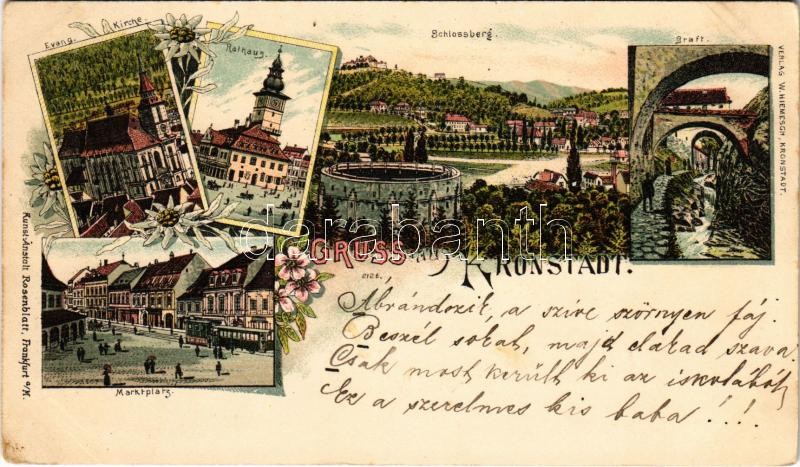 Evang. Kirche.
Rathaus.
Schlossberg.
Graft.
VERLAG W. HIEMESCH, KRONSTADT.
darabanth
GRUSS aus KRONSTADT.
2126.
Marktplatz.
Kunst-Anstalt Rosenblatt, Frankfurt a/M.
Ábrándozik, a szíve szörnyen fáj.
Beszél sokat, majd elakad szava.
Csak most került ki az iskolából,
Ez a szerelmes kis baba!!!